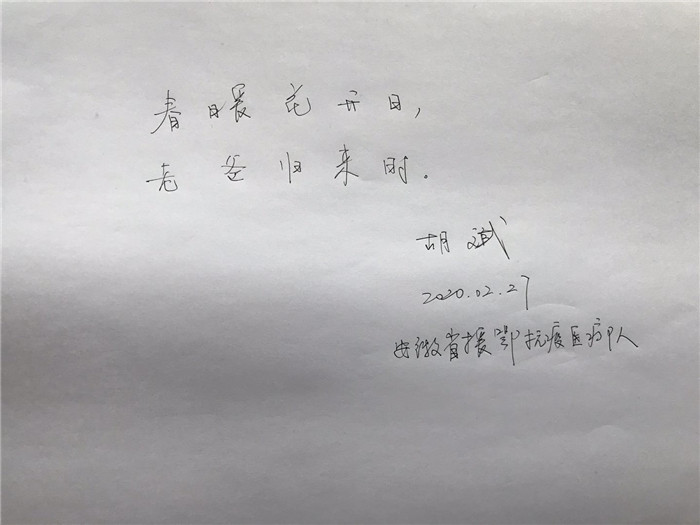 春暖花开日，
老爸归来时。
胡斌
2020.02.27
安徽省援鄂抗疫医疗队